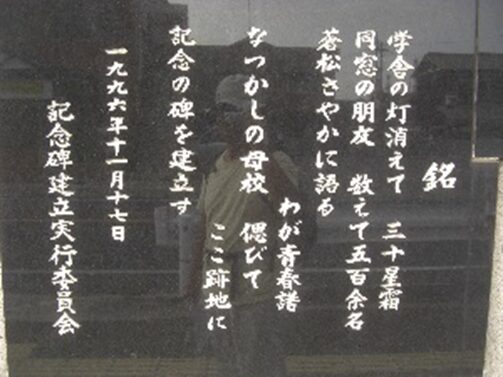 銘
学舎の灯消えて 三十星霜
同窓の朋友 数えて五百余名
蒼松さやかに語る
わが青春譜
なつかしの母校 偲びて
ここ跡地に
記念の碑を建立す
一九九六年十一月十七日
記念碑建立実行委員会